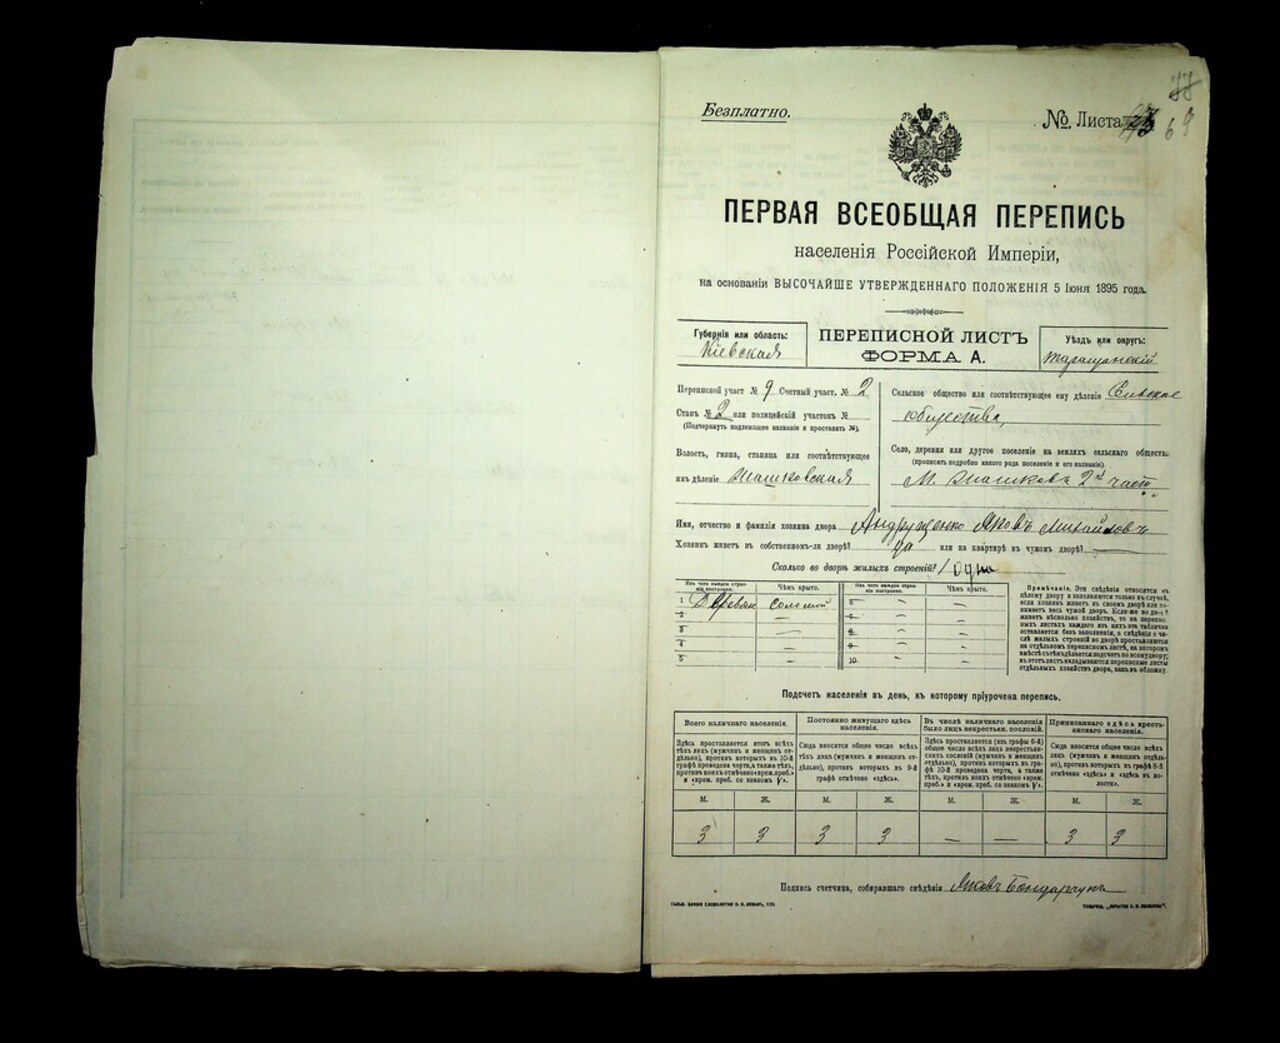 Безплатно.
№ Листа
69
ПЕРВАЯ ВСЕОБЩАЯ ПЕРЕПИСЬ
населенія Россійской Имперіи,
на основаніи ВЫСОЧАЙШЕ УТВЕРЖДЕННАГО ПОЛОЖЕНІЯ 5 Іюня 1895 года.
Губернія или область:
Кіевская
ПЕРЕПИСНОЙ ЛИСТЪ
ФОРМА А.
Уѣздъ или округъ:
Таращанскій
Переписной участ № 9 Счетный участ. № 2
Станъ № 2 или полицейскій участокъ №
(Подчеркнуть надлежащее названіе и проставить №).
Волость, гмина, станица или соотвѣтствующее
имъ дѣленіе
Сельское общество или соотвѣтствующее ему дѣленіе
общества,
Село, деревня или другое поселеніе на земляхъ сельскаго обществ.
(прописать подробно какого рода поселеніе и его названіе).
М. 2й част
Имя, отчество и фамилія хозяина двора Андрущенко Яковъ Михайловъ
Хозяинъ живетъ въ собственномъ-ли дворѣ? да или на квартирѣ въ чужомъ дворѣ? —
Сколько во дворѣ жилыхъ строеній? 1 одно
Изъ чего каждое строеніе построено. Чѣмъ крыто. Изъ чего каждое строеніе построено. Чѣмъ крыто.
1 Деревян соломой 6 — —
2 — 7 — —
3 — 8 — —
4 — 9 — —
5 — 10 — —
Примѣчаніе. Эти свѣдѣнія относятся къ
цѣлому двору и заполняются только въ случаѣ,
если хозяинъ живетъ въ своемъ дворѣ или за-
нимаетъ весь чужой дворъ. Если-же во дворѣ
живетъ нѣсколько хозяйствъ, то на перепис-
ныхъ листахъ каждаго изъ нихъ эта табличка
оставляется безъ заполненія, а свѣдѣнія о чи-
слѣ жилыхъ строеній во дворѣ проставляются
на отдѣльномъ переписномъ листѣ, на которомъ
вмѣстѣ съ тѣмъ дѣлается подсчетъ по всему двору;
въ этотъ листъ вкладываются переписные листы
отдѣльныхъ хозяйствъ двора, какъ въ обложку.
Подсчетъ населенія въ день, къ которому пріурочена перепись.
Всего наличнаго населенія.
Здѣсь проставляется итогъ всѣхъ
тѣхъ лицъ (мужчинъ и женщинъ от-
дѣльно), противъ которыхъ въ 10-й
графѣ проведена черта, а также тѣхъ,
противъ коихъ отмѣчено «врем. преб.»
и «врем. преб. со знакомъ V».
Постоянно живущаго здѣсь
населенія.
Сюда вносится общее число всѣхъ
тѣхъ лицъ (мужчинъ и женщинъ от-
дѣльно), противъ которыхъ въ 9-й
графѣ отмѣчено «здѣсь».
Въ числѣ наличнаго населенія
было лицъ некрестьян. сословій.
Здѣсь проставляется (изъ графы 6-й)
общее число всѣхъ лицъ некрестьян-
скихъ сословій (мужчинъ и женщинъ
отдѣльно), противъ которыхъ въ гра-
фѣ 10-й проведена черта, а также
тѣхъ, противъ коихъ отмѣчено «врем.
преб.» и «врем. преб. со знакомъ V».
Приписаннаго здѣсь кресть-
янскаго населенія.
Сюда вносится общее число всѣхъ
лицъ (мужчинъ и женщинъ отдѣль-
но), противъ которыхъ въ графѣ 8-й
отмѣчено «здѣсь» и «здѣсь въ во-
лости».
М. Ж. М. Ж. М. Ж. М. Ж.
3 3 3 3 — — 3 3
Подпись счетчика, собиравшаго свѣдѣнія Яковъ Бондарчукъ